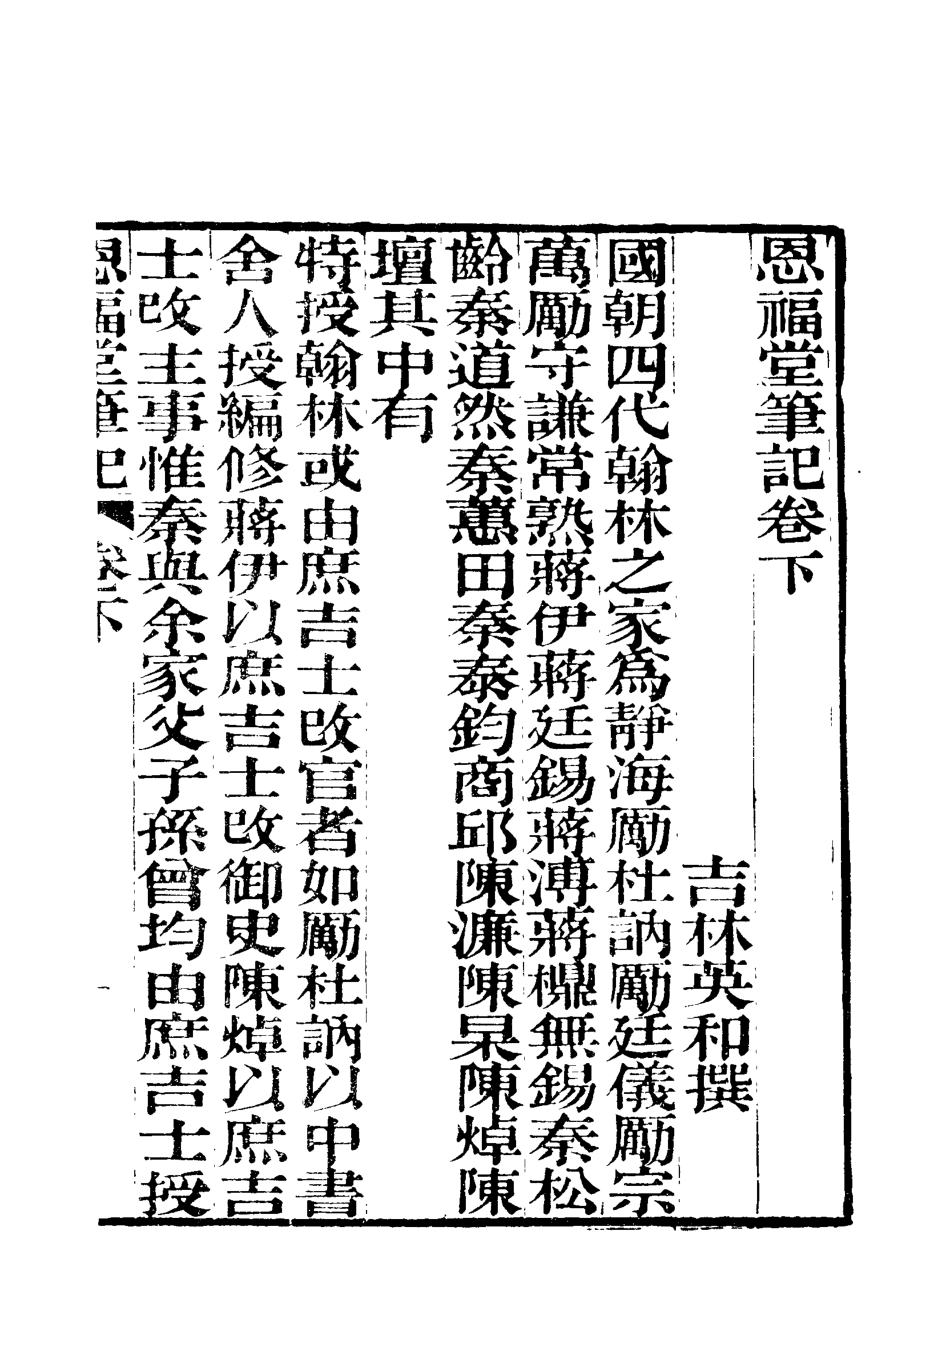 恩福堂筆記卷下
吉林英和撰
國朝四代翰林之家爲靜海勵杜訥勵廷儀勵宗
萬勵守謙常熟蔣伊蔣廷錫蔣溥蔣檙無錫秦松
齡秦道然秦蕙田秦泰鈞商邱陳濂陳杲陳焯陳
壇其中有
特授翰林或由庶吉士改官者如勵杜訥以中書
舍人授編修蔣伊以庶吉士改御史陳焯以庶吉
士改主事惟秦與余家父子孫曾均由庶吉士授
恩福堂筆記 卷下 一